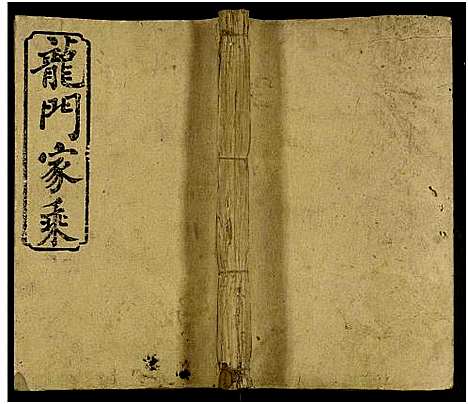 龍門家乘